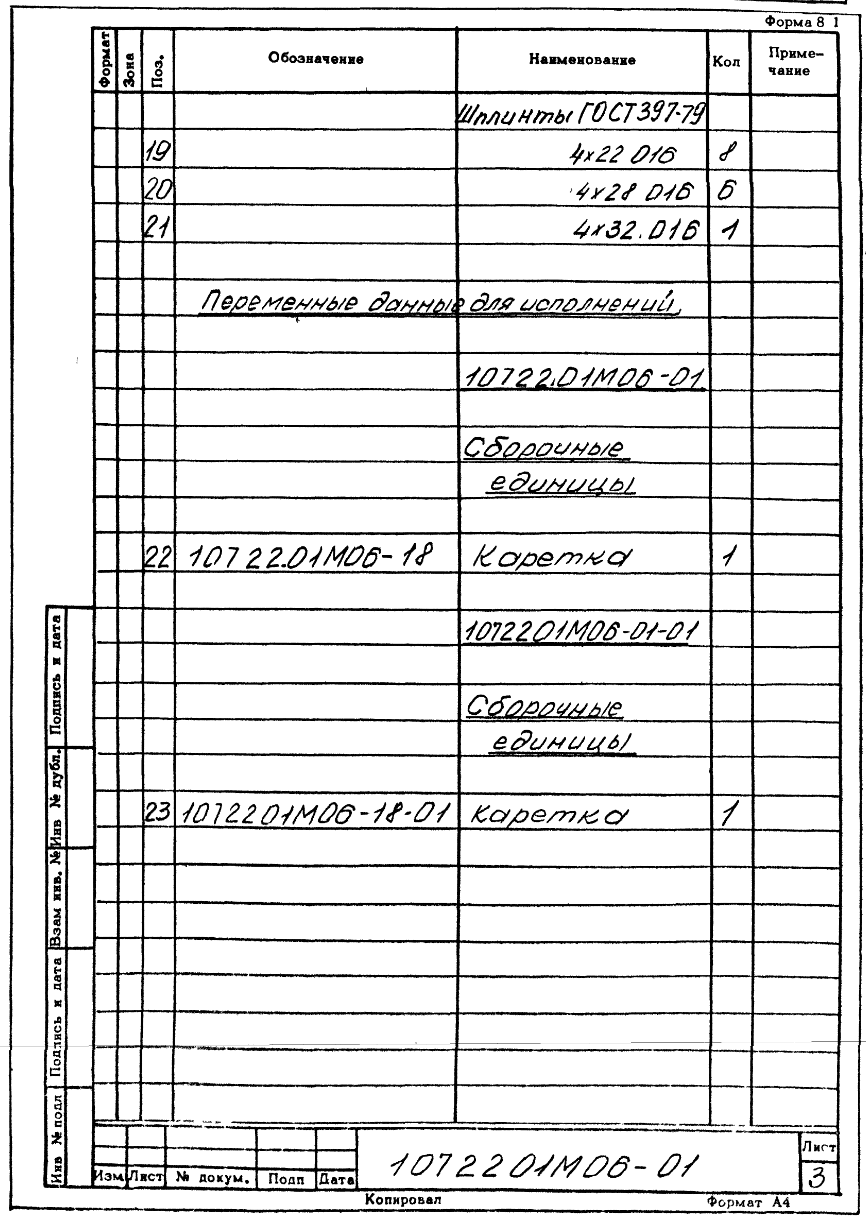 Форма 8 1
Формат Зона Поз. Обозначение Наименование Кол Приме-
чание
Шплинты ГОСТ 397-79
19 4х22 016 8
20 4х28 016 6
21 4х32.016 1
Переменные данные для исполнений
10722.01М06-01
Сборочные
единицы
22 10722.01М06-18 Каретка 1
1072201М06-01-01
Сборочные
единицы
23 1072201М06-18-01 Каретка 1
Подпись и дата
Инв № дубл.
Взам инв. №
Подпись и дата
Инв № подл
Изм Лист № докум. Подп Дата
1072201М06-01
Лист
3
Копировал Формат А4